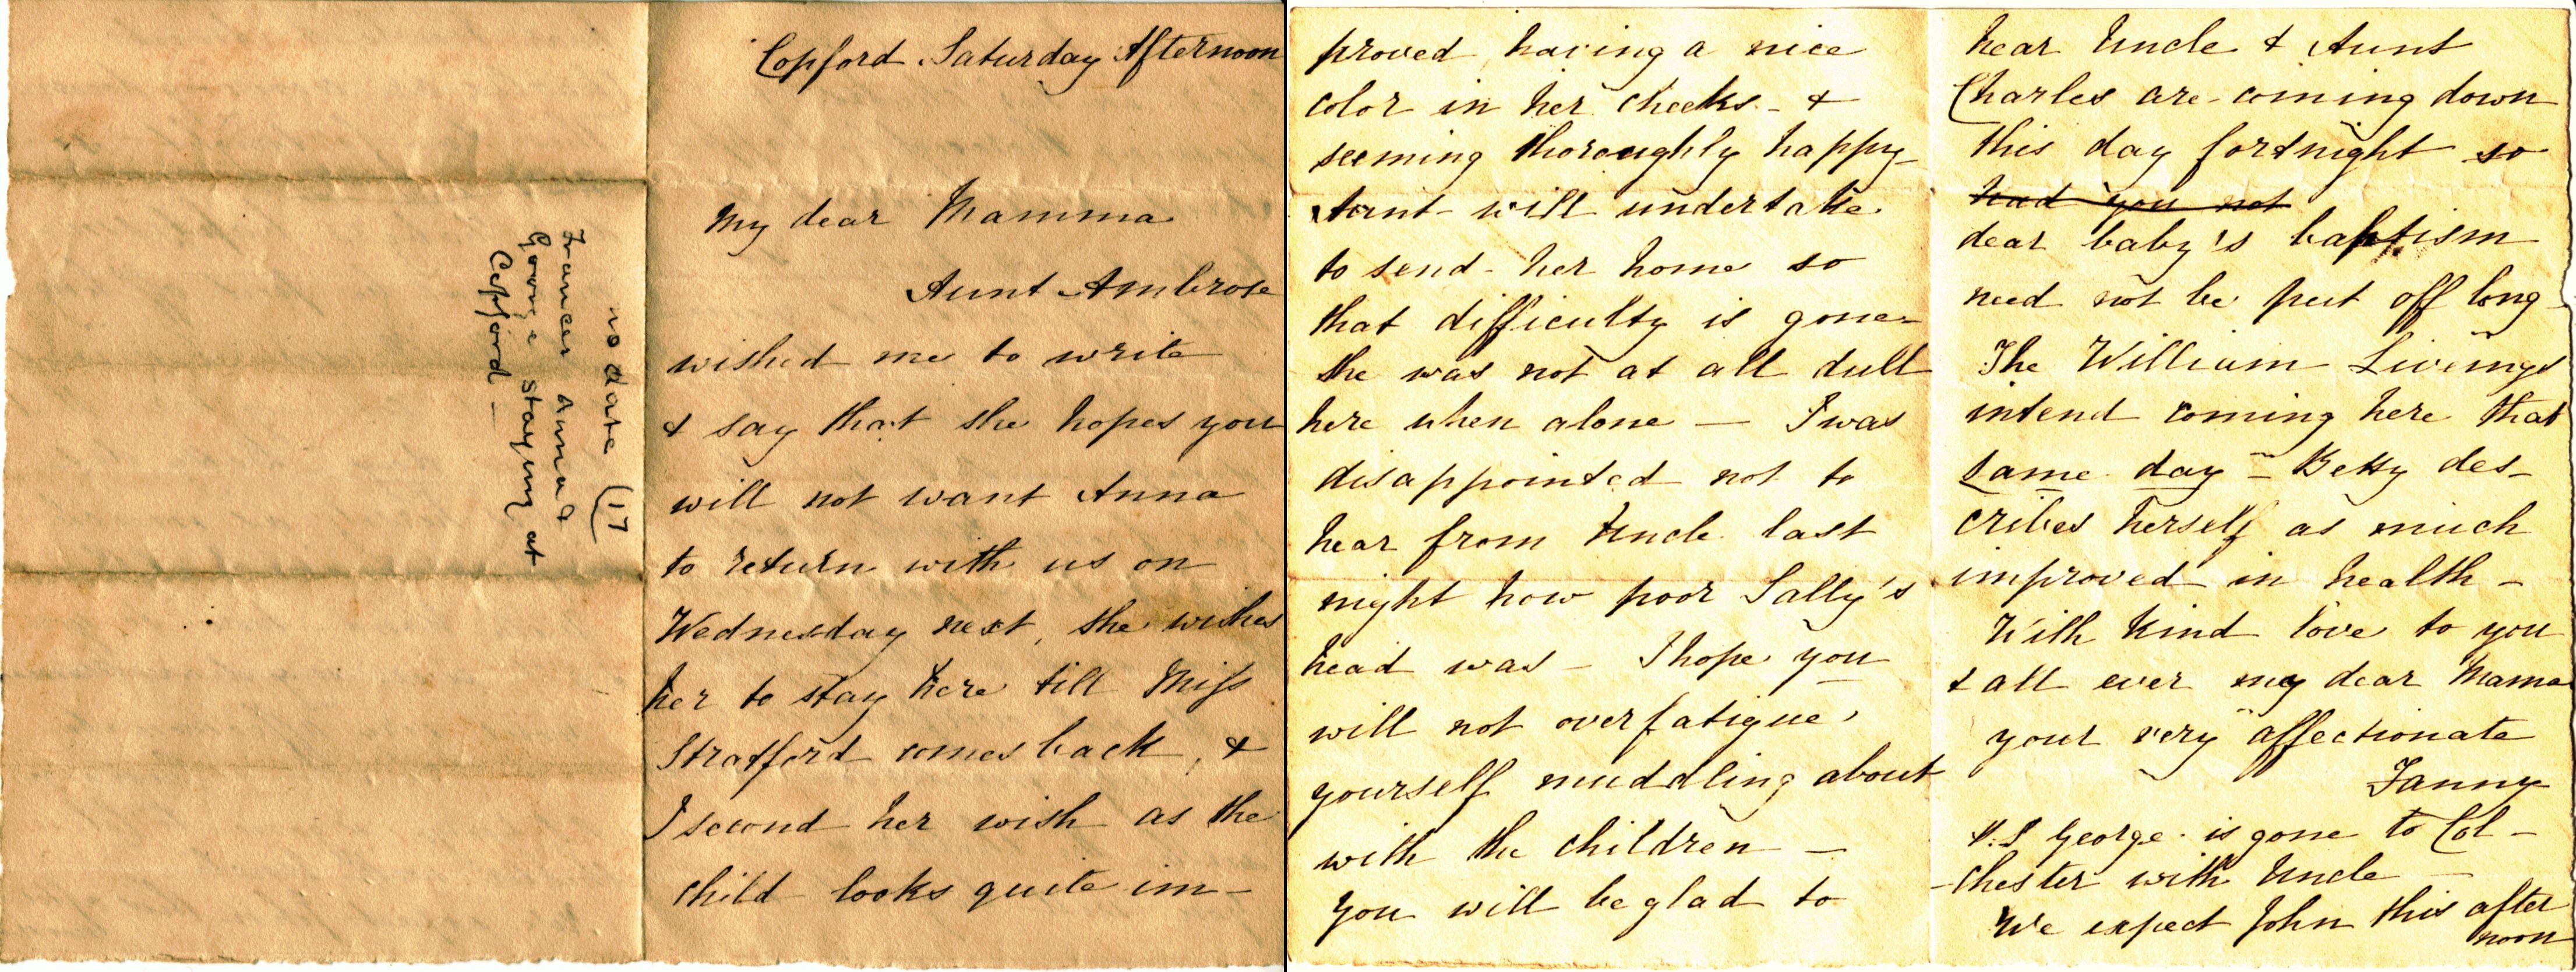 no date (17
Frances Anna &
George staying at
Copford -
Copford Saturday Afternoon
My dear Mamma
Aunt Ambrose
wished me to write
& say that she hopes you
will not want Anna
to return with us on
Wednesday next, she wishes
her to stay here till Miss
Stratford comes back, &
I second her wish as the
child looks quite im-
proved having a nice
color in her cheeks - &
seeming thoroughly happy
Aunt will undertake
to send her home so
that difficulty is gone -
she was not at all dull
here when alone — I was
disappointed not to
hear from Uncle last
night how poor Sally's
head was - I hope you
will not overfatigue
yourself muddling about
with the children —
You will be glad to
hear Uncle & Aunt
Charles are coming down
this day fortnight so
had you not
dear baby's baptism
need not be put off long
The William Livings
intend coming here that
same day - Betty des-
cribes herself as much
improved in health -
With kind love to you
& all ever my dear Mama
your very affectionate
Fanny
P.S George is gone to Col-
-chester with Uncle -
We expect John this after
noon